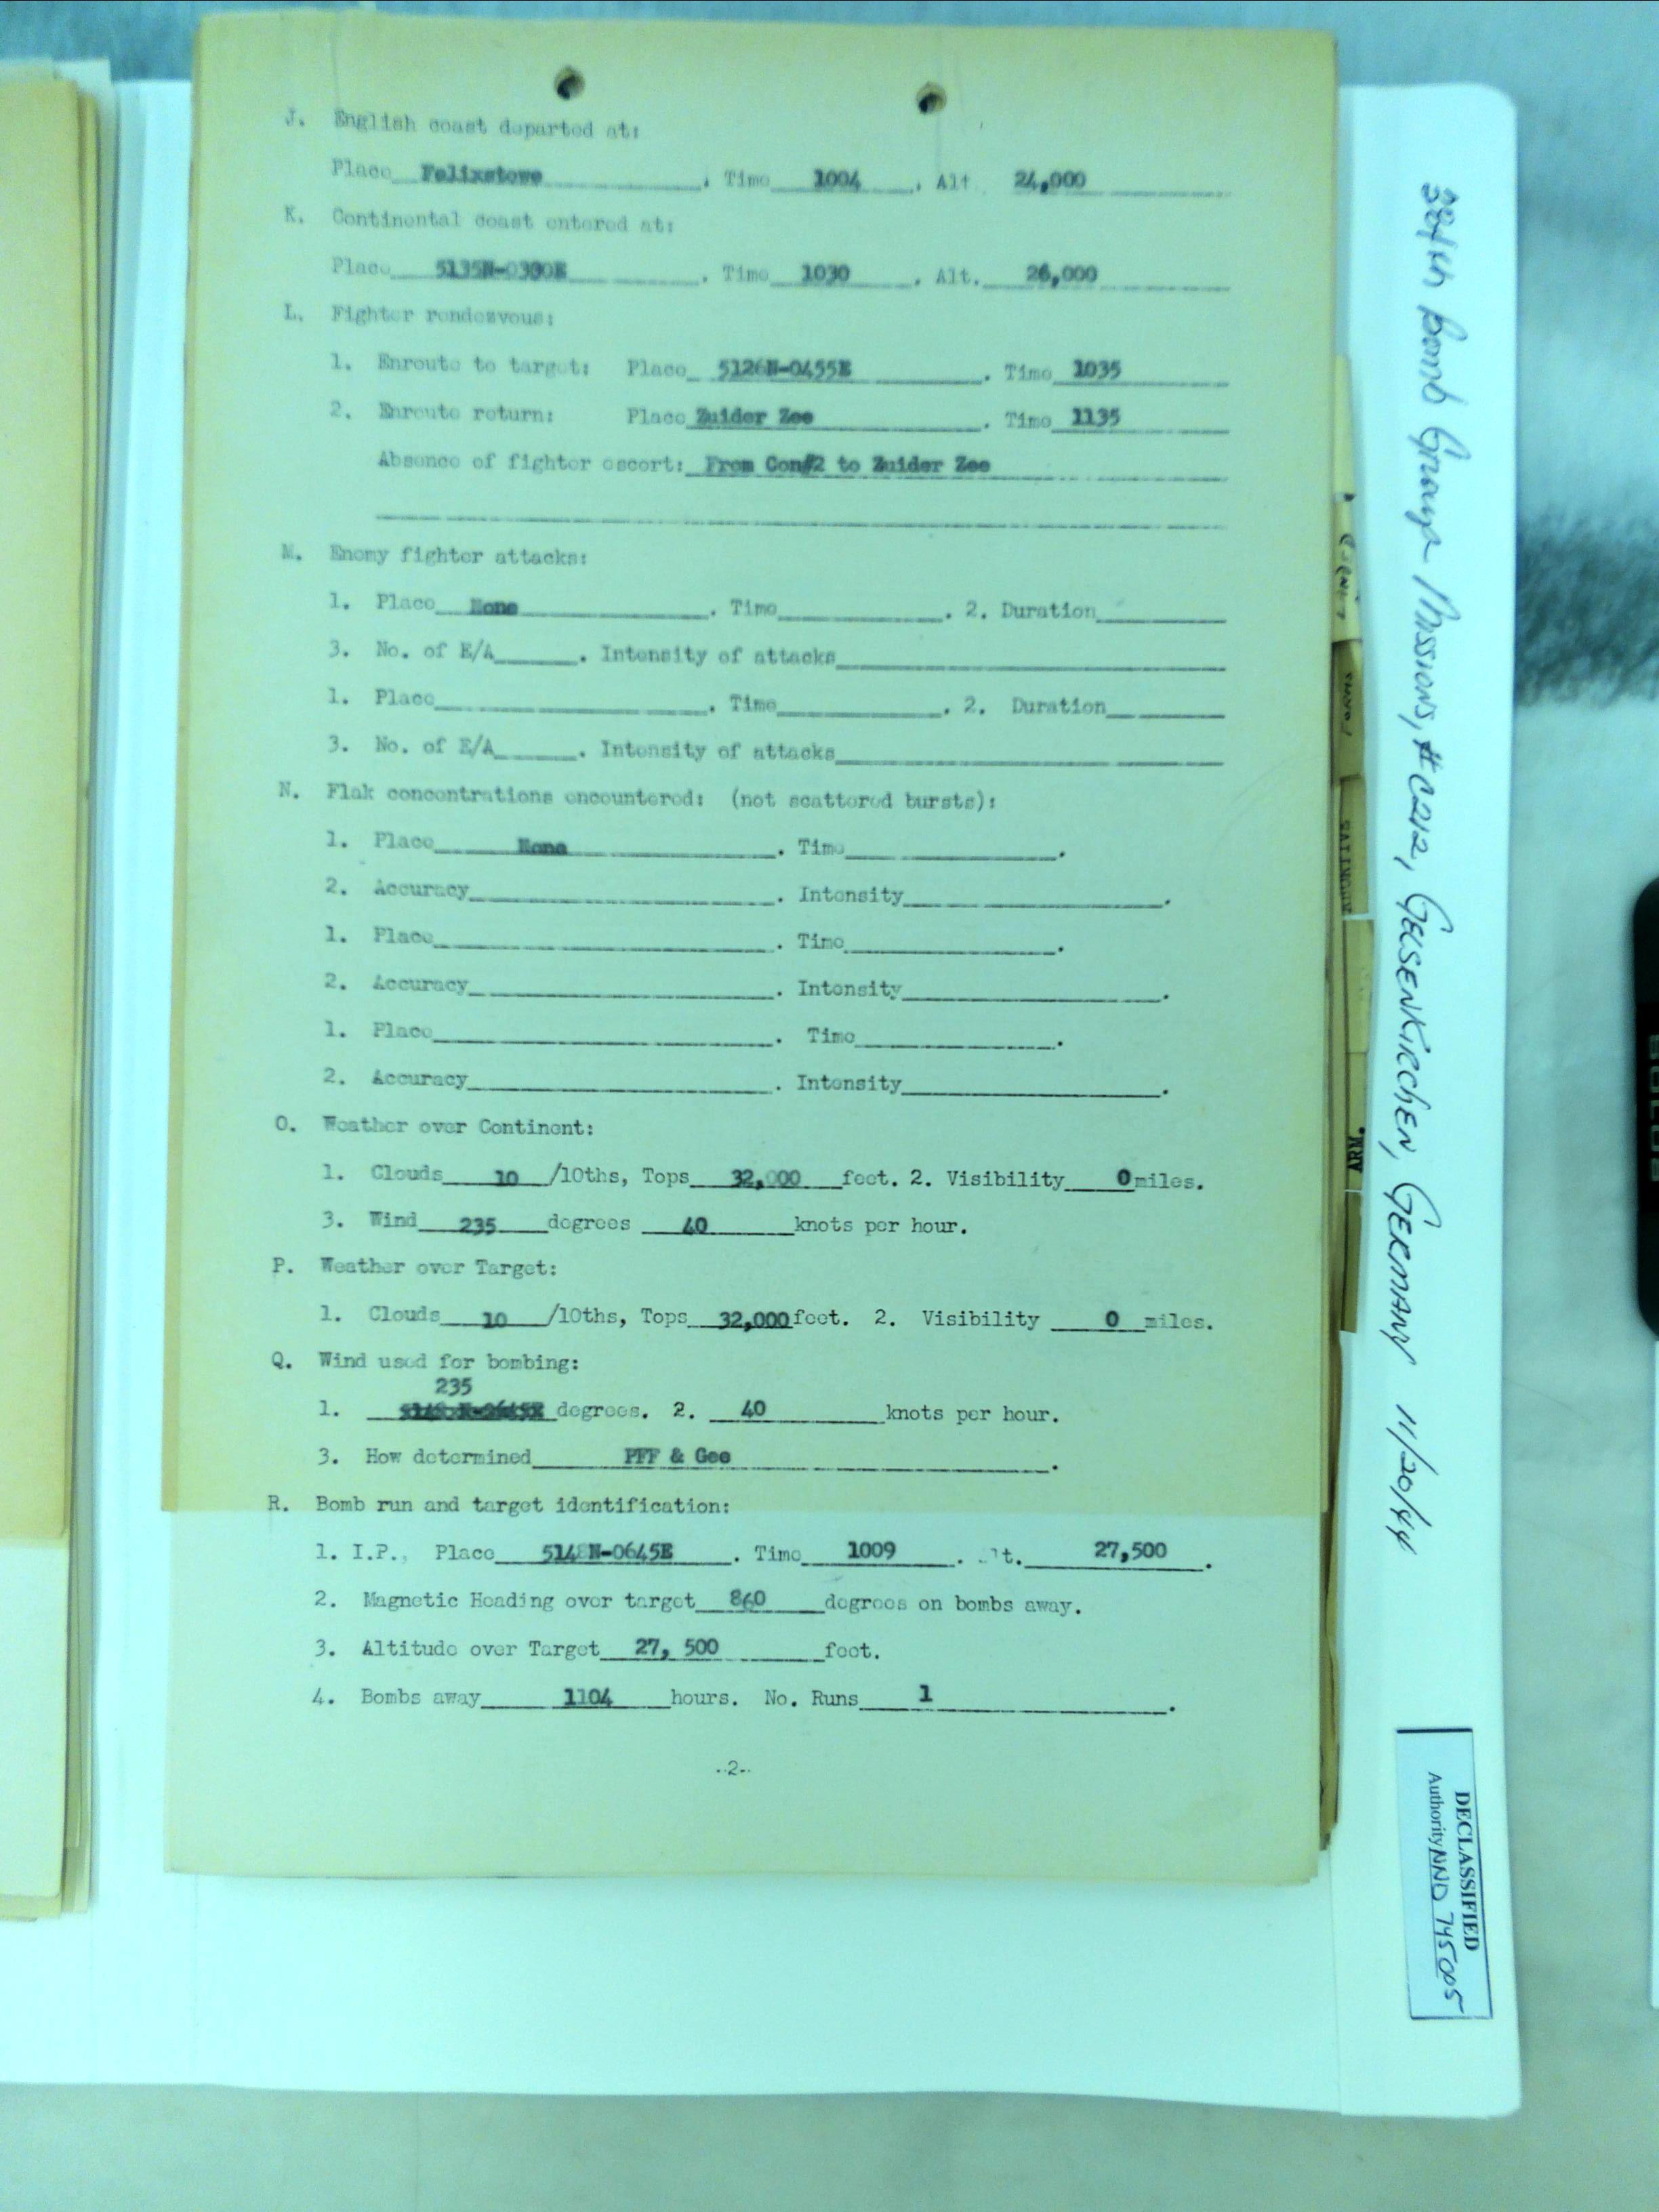 J. English coast departed at:
Place Felixstowe . Time 1004 . Alt. 24,000
K. Continental coast entered at:
Place 5135N-0300E . Time 1030 . Alt. 26,000
L. Fighter rendezvous:
1. Enroute to target: Place 5126N-0455E . Time 1035
2. Enroute return: Place Zuider Zee . Time 1135
Absence of fighter escort: From Con#2 to Zuider Zee
M. Enemy fighter attacks:
1. Place None . Time . 2. Duration
3. No. of E/A . Intensity of attacks
1. Place . Time . 2. Duration
3. No. of E/A . Intensity of attacks
N. Flak concentrations encountered: (not scattered bursts):
1. Place None . Time .
2. Accuracy . Intensity .
1. Place . Time .
2. Accuracy . Intensity .
1. Place . Time .
2. Accuracy . Intensity .
O. Weather over Continent:
1. Clouds 10 /10ths, Tops 32,000 feet. 2. Visibility 0 miles.
3. Wind 235 degrees 40 knots per hour.
P. Weather over Target:
1. Clouds 10 /10ths, Tops 32,000 feet. 2. Visibility 0 miles.
Q. Wind used for bombing:
235
1. degrees. 2. 40 knots per hour.
3. How determined PFF & Gee .
R. Bomb run and target identification:
1. I.P., Place 5148N-0645E . Time 1009 . Alt. 27,500 .
2. Magnetic Heading over target degrees on bombs away.
3. Altitude over Target 27, 500 feet.
4. Bombs away 1104 hours. No. Runs 1 .
-2-
384th Bomb Group Missions, #C212, GELSENKIRCHEN, GERMANY 11/20/44
ARM.
DECLASSIFIED
Authority NND 745005